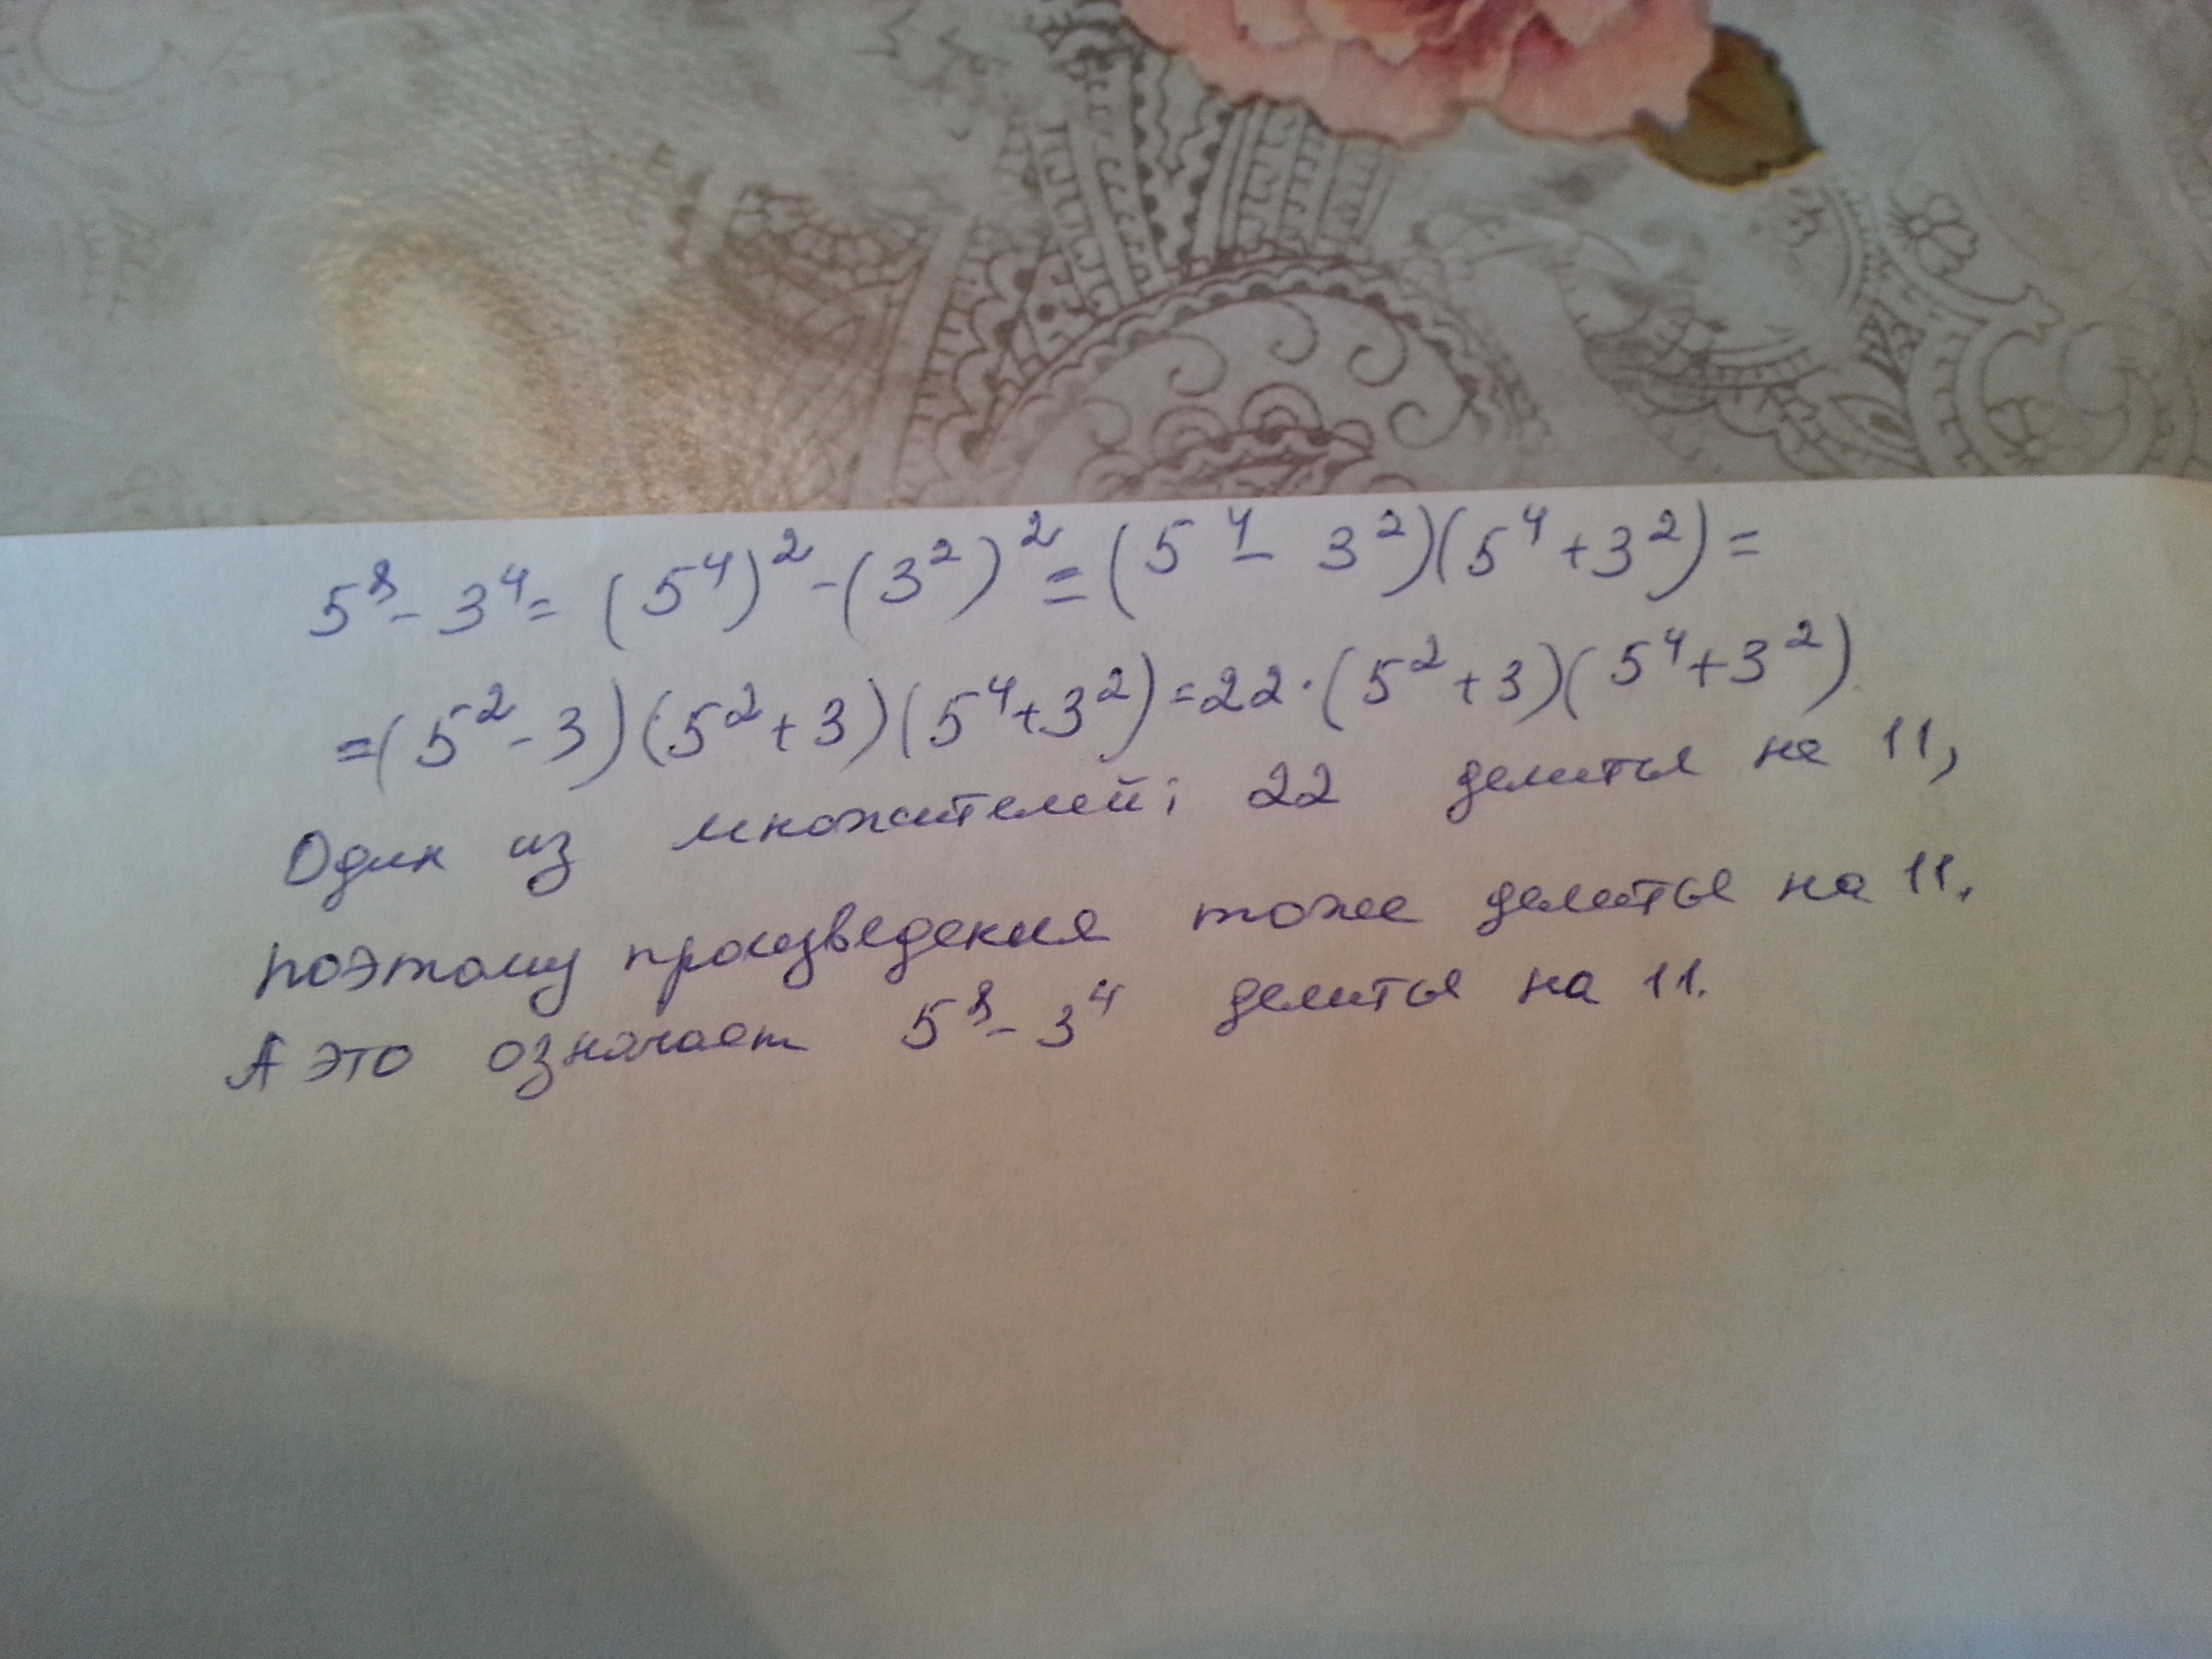 5⁸ - 3⁴ = (5⁴)² - (3²)² = (5⁴ - 3²)(5⁴ + 3²) =
= (5² - 3)(5² + 3)(5⁴ + 3²) = 22 · (5² + 3)(5⁴ + 3²)
Один из множителей; 22 делиться на 11,
поэтому произведения тоже делиться на 11.
А это означает 5⁸ - 3⁴ делиться на 11.